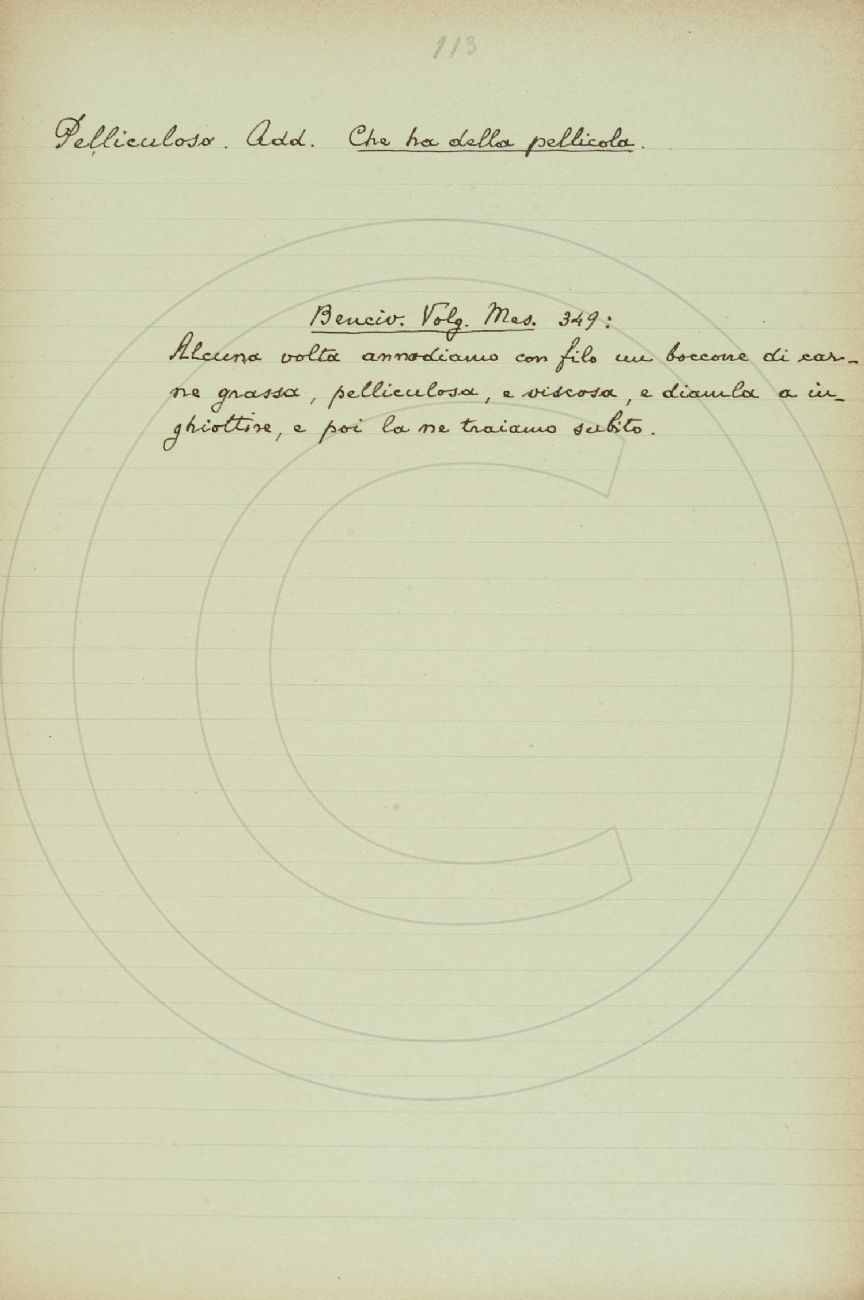 113
Pelliculoso. Add. Che ha della pellicola.
Benciv. Volg. Mes. 349:
Alcuna volta annodiamo con filo un boccone di car-
ne grassa, pelliculosa, e viscosa, e diamla a in-
ghiottire, e poi la ne traiamo subito.